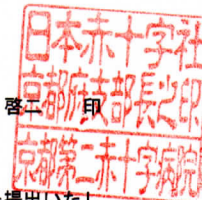 日本赤十字社
京都府支部長之印
京都第二赤十字病院
啓二　印
提出いたし